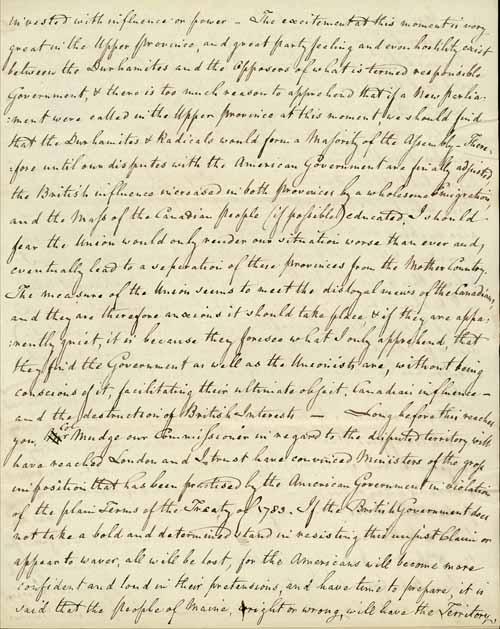 invested with influence or power – The excitement at this moment is very
great in the Upper Province, and great party feeling and even hostility exist
between the Durhamites and the opposers of what is termed responsible
Government, & there is too much reason to apprehend that if a New Parlia=
=ment were called in the Upper Province at this moment we should find
that the Durhamites & Radicals would form a Majority of the Assembly – There=
=fore until our disputes with the American Government are finally adjusted
the British influence increased in both Provinces by a wholesome Emigration,
and the Mass of the Canadian People (if possible) educated, I should
fear the Union would only render our situation worse than ever and,
eventually lead to a separation of these Provinces from the Mother Country.
The measure of the Union seems to meet the disloyal views of the Canadians,
and they are therefore anxious it should take place, & if they are appa=
=rently quiet, it is because they foresee what I only apprehend, that
they find the Government as well as the Unionists are, without being
conscious of it, facilitating their ultimate object, Canadian influence –
and the destruction of British Interests — Long before this reaches
you, Col Mudge our Commissioner in regard to the disputed territory will
have reached London and I trust have convinced Ministers of the gross
imposition that has been practised by the American Government in violation
of the plain Terms of the Treaty of 1783. If the British Government does
not take a bold and determined stand in resisting this unjust Claim or
appear to waver, all will be lost, for the Americans will become more
confident and loud in their pretensions, and have time to prepare, it is
said that the People of Maine, right or wrong, will have the Territory,